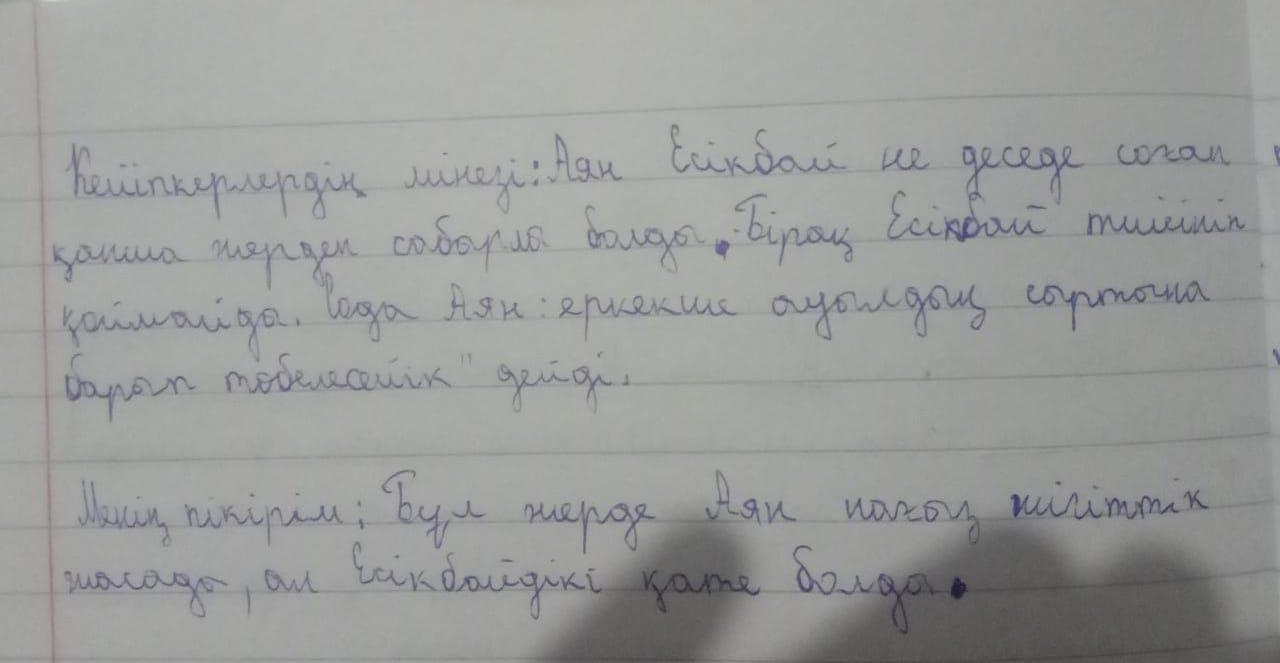 Кейіпкерлердің мінезі: Аян Есікбай не деседе соған
қанша жерден сабырлы болды. Бірақ Есікбай тиісіп
қоймайды. Сода Аян: еркекше ауылдың сыртына
барып төбелесейік" дейді.
Менің пікірім: Бұл жерде Аян нағыз жігіттік
жасады, ал Есікбайдікі қате болды.